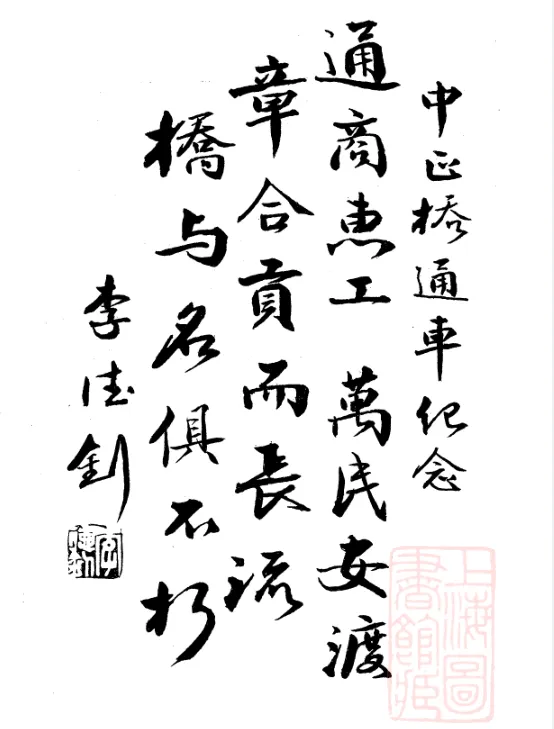 中正橋通車纪念
通商惠工 萬民安渡
章合貢而長流
橋与名俱不朽
李德釗
李德釗
上海圖書館藏